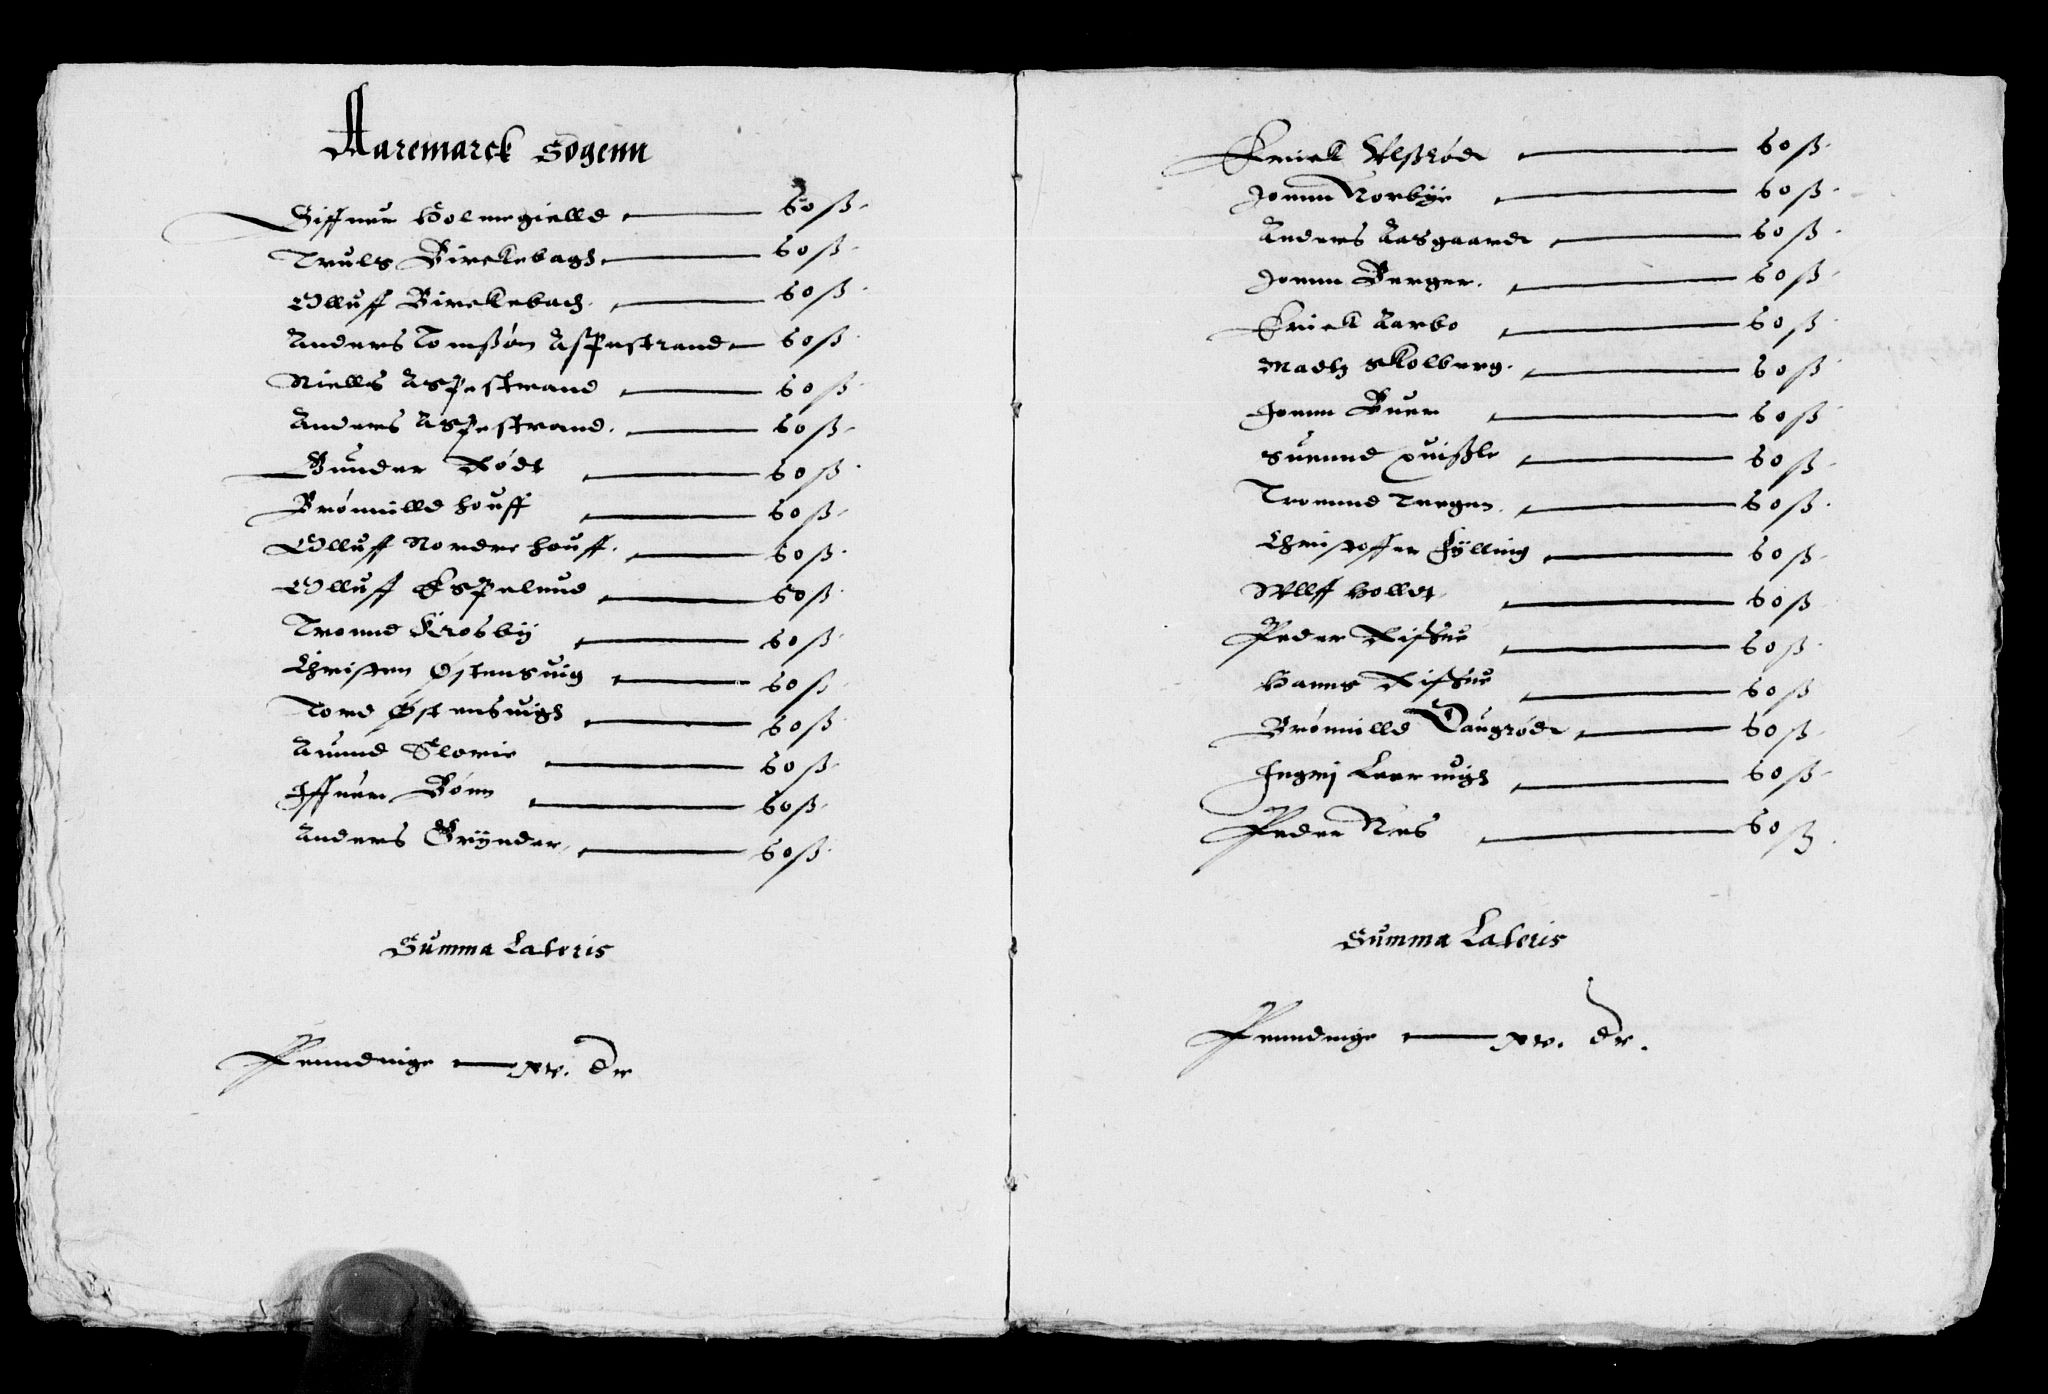 Aaremarck Sogenn
Siffuer Holmegielld 60 ß
Truls Birckebagh 60 ß
Olluff Birckebach 60 ß
Anders Tomßøn Aspestrand 60 ß
Niells Aspestrand 60 ß
Anders Aspestrand 60 ß
Gunder Rødt 60 ß
Brønnilld houff 60 ß
Olluff Nordre houff 60 ß
Olluff Espelund 60 ß
Tround Krosby 60 ß
Christen Østensuig 60 ß
Tord Østensuigh 60 ß
Amund Slorie 60 ß
Iffuer Bønn 60 ß
Anders Grynder 60 ß
Summa Lateris
Penndinge xv. dr
Erick Ulßrød 60 ß
Joenn Norbye 60 ß
Anders Aasgaard 60 ß
Joenn Berger 60 ß
Erick Aarbo 60 ß
Madtz Skolberg 60 ß
Joenn Buer 60 ß
Suennd 60 ß
Tromnd 60 ß
Christoffer Fylling 60 ß
Ullff Holledt 60 ß
Peder Riffue 60 ß
Hanns Riffue 60 ß
Brønnilld Daugrød 60 ß
Ingrj Leeruigh 60 ß
Peder Nes 60 ß
Summa Lateris
Penndinge xv. dr.